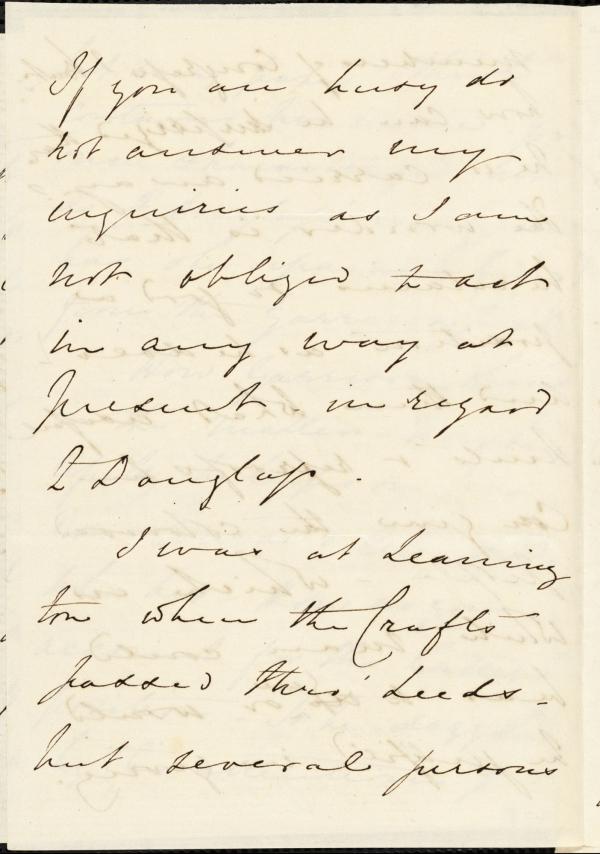 If you are busy do
not answer my
inquiries as I am
not obliged to act
in any way at
present in regard
to Douglass.
I was at Leaming
ton when the Crafts
passed thro' Leeds -
but several persons